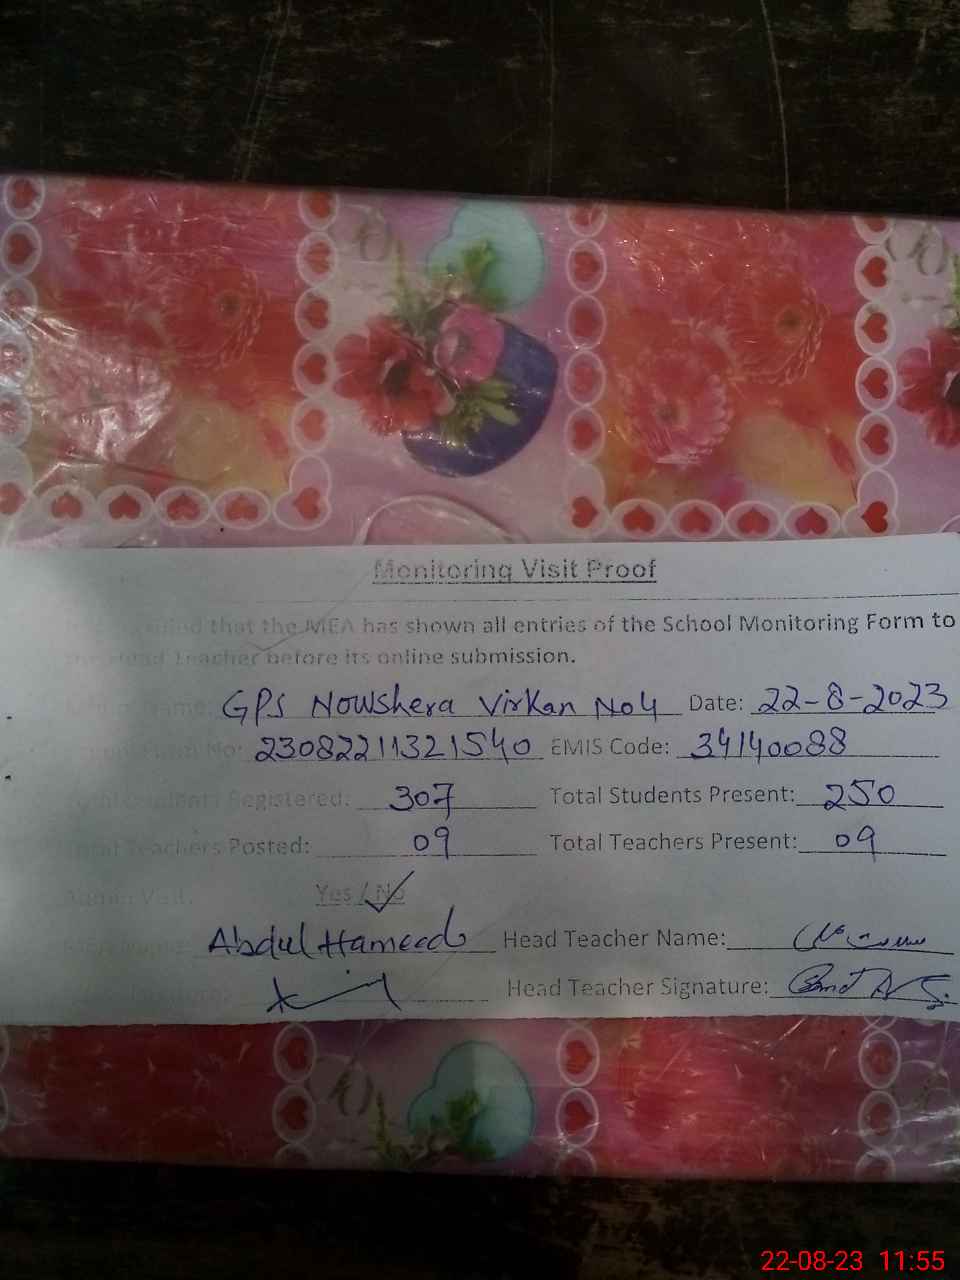 Monitoring Visit Proof
that the MEA has shown all entries of the School Monitoring Form to
the Head Teacher before its online submission.
Name: GPS Nowshera Virkan No4 Date: 22-8-2023
No: 23082211321540 EMIS Code: 34140088
Registered: 307 Total Students Present: 250
Total Teachers Posted: 09 Total Teachers Present: 09
Admin Visit: Yes / No
Abdul Hameed Head Teacher Name:
Head Teacher Signature:
22-08-23 11:55